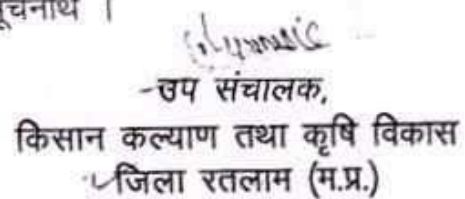 सूचनार्थ ।
उप संचालक,
किसान कल्याण तथा कृषि विकास
जिला रतलाम (म.प्र.)